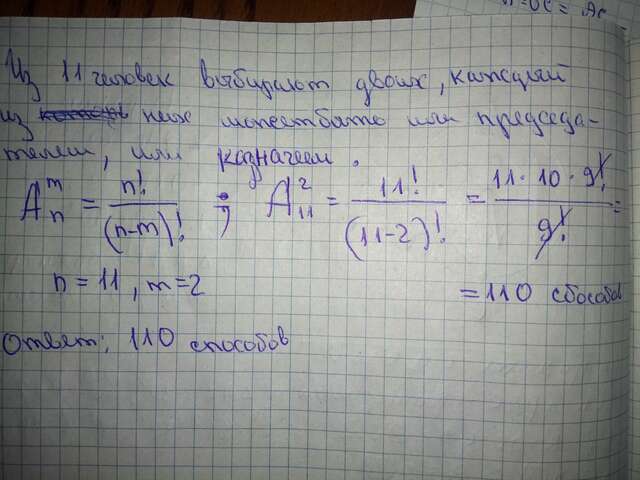 =ОС = АС
Из 11 человек выбирают двоих, каждый
из них может быть или председа-
телем, или казначеем.
A_n^m = n!/(n-m)! ; A_11^2 = 11!/(11-2)! = 11·10·9!/9! =
n = 11, m=2 =110 способов
Ответ: 110 способов